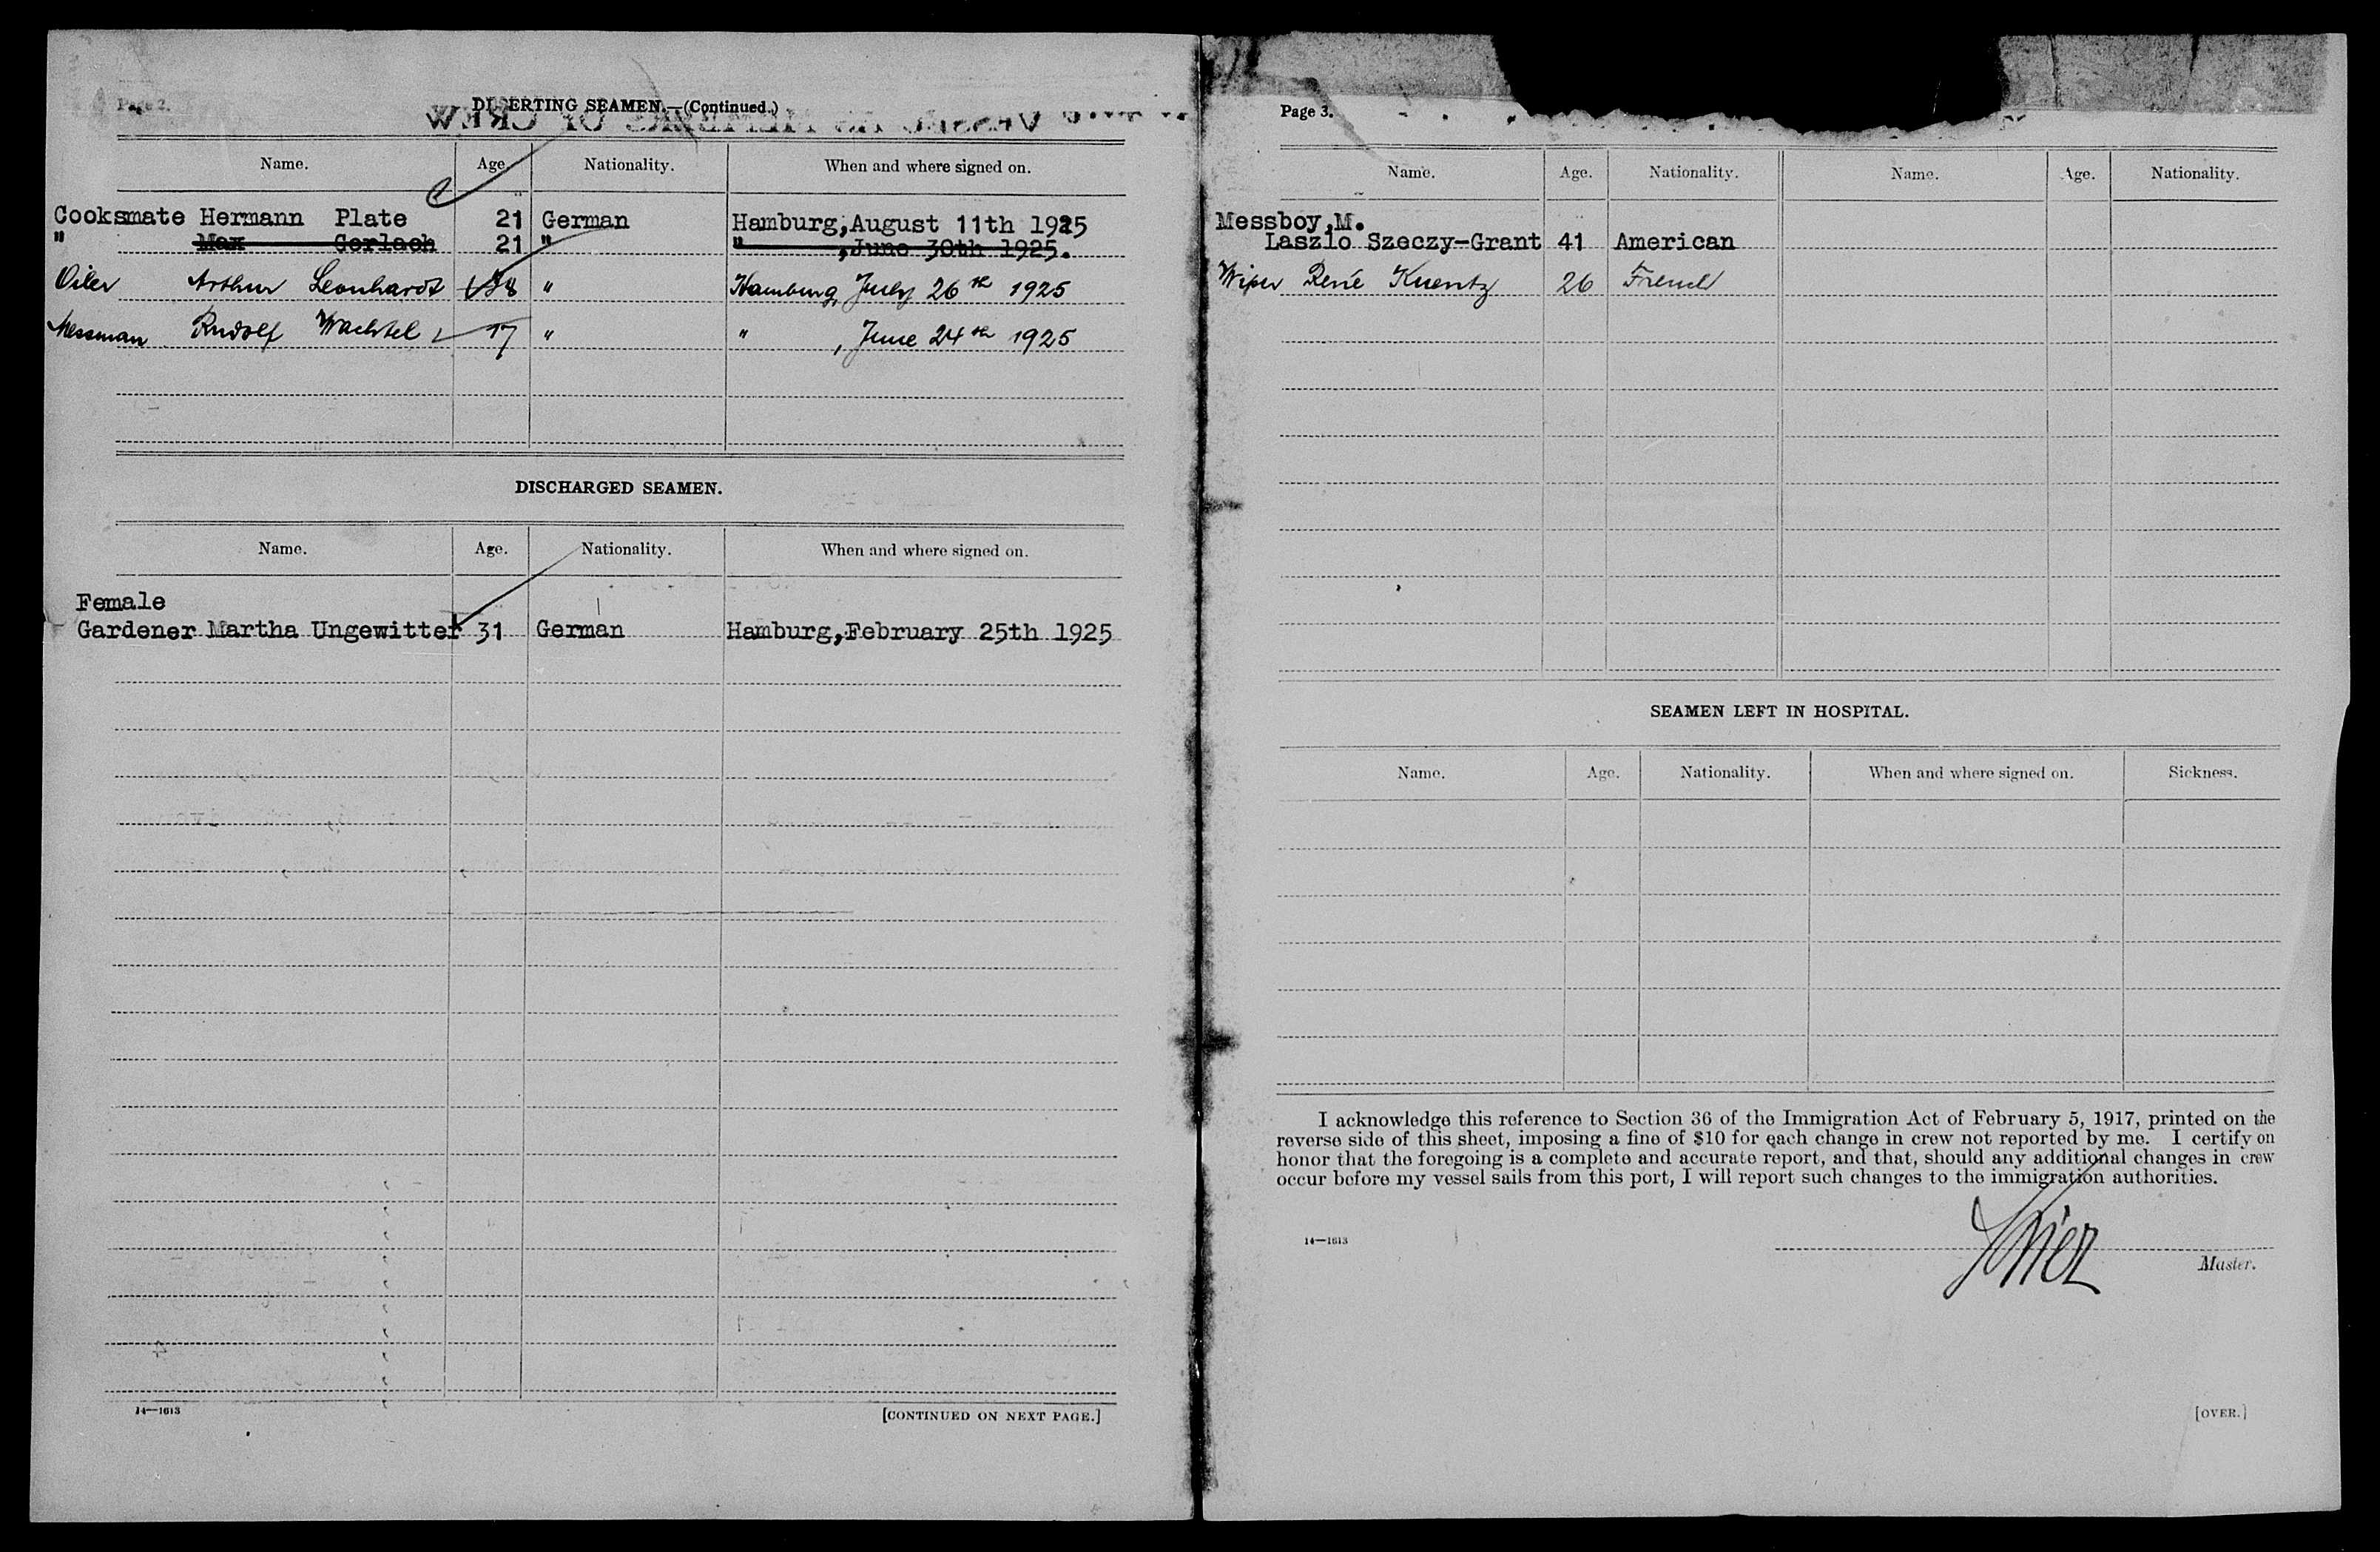 Page 2.
DESERTING SEAMEN.—(Continued.)
Name. Age. Nationality. When and where signed on.
Cooksmate Hermann Plate 21 German Hamburg, August 11th 1925
" Max Gerlach 21 " " ,June 30th 1925.
Oiler Arthur Leonhardt 28 " Hamburg, July 26th 1925
Messman Rudolf Wachtel 17 " " , June 24th 1925
DISCHARGED SEAMEN.
Name. Age. Nationality. When and where signed on.
Female
Gardener Martha Ungewitter 31 German Hamburg,February 25th 1925
14—1613
[CONTINUED ON NEXT PAGE.]
Page 3.
Name. Age. Nationality. Name. Age. Nationality.
Messboy M.
Laszlo Szeczy-Grant 41 American
Wiper René Kuentz 26 French
SEAMEN LEFT IN HOSPITAL.
Name. Age. Nationality. When and where signed on. Sickness.
I acknowledge this reference to Section 36 of the Immigration Act of February 5, 1917, printed on the
reverse side of this sheet, imposing a fine of $10 for each change in crew not reported by me. I certify on
honor that the foregoing is a complete and accurate report, and that, should any additional changes in crew
occur before my vessel sails from this port, I will report such changes to the immigration authorities.
14—1613
Master.
[OVER.]